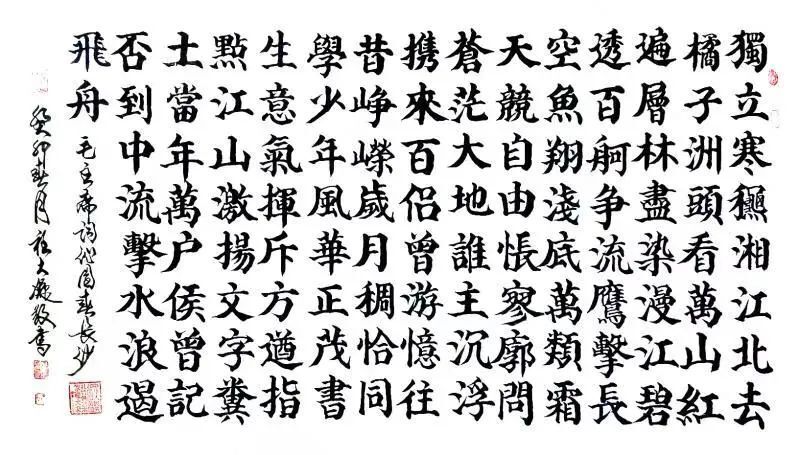 獨立寒穐湘江北去
橘子洲頭看萬山紅
遍層林盡染漫江碧
透百舸争流鷹擊長
空魚翔淺底萬類霜
天競自由悵寥廓問
蒼茫大地誰主沉浮
携來百侣曾游憶往
昔崢嶸歲月稠恰同
學少年風華正茂書
生意氣揮斥方遒指
點江山激揚文字糞
土當年萬户侯曾記
否到中流擊水浪遏
飛舟 毛主席詞沁園春長沙
癸卯春月 大 敬書